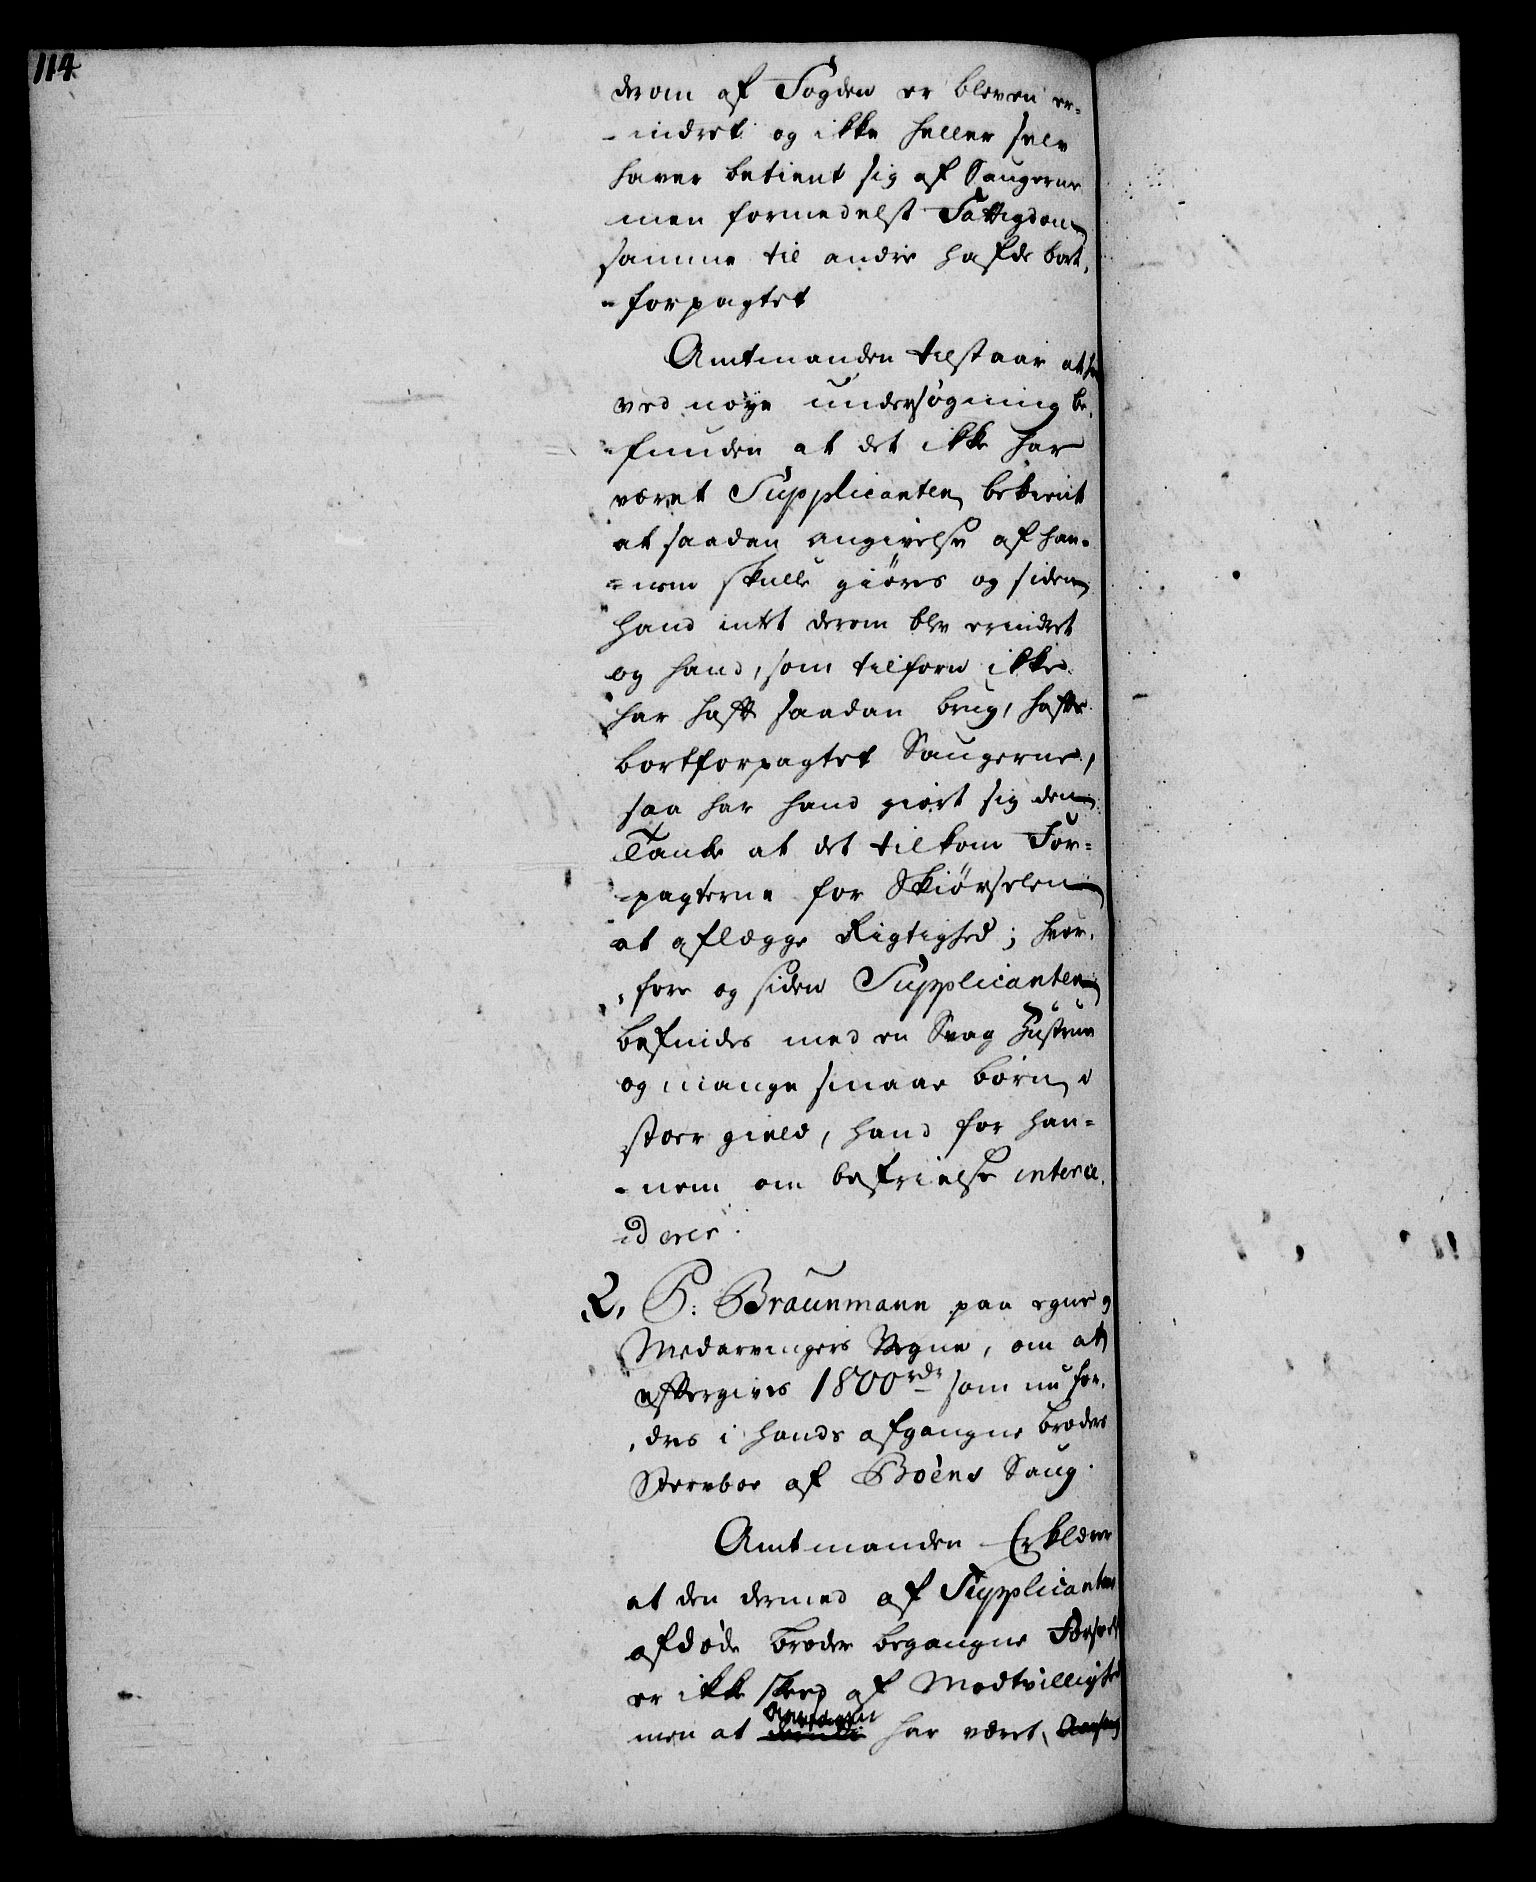 114.
derom af Fogden er bleven er-
-indret og ikke heller selv
haver betient sig af Saugerne
men formedelst Fattigdom
samme til andre hafde bort-
-forpagtet
Amtmanden tilstaar at
ved nøye undersøgning be-
-funden at det ikke har
været Supplicanten bekient
at saadan angivelse af han-
=nem skulle giøres og siden
hand intet derom blev erindret
og hand, som tilforn ikke
har haft saadan brug, hafde
bortforpagtet Saugerne,
saa har hand giort sig den
Tanke at det tilkom For-
pagterne for Skiørselen
at aflægge Rigtighed; hvor-
-fore og siden Supplicanten
befindes med en Svag Hustrue
og mange smaae børn i
stoer gield, hand for han-
-nem om befrielse interce-
derer.
2, P: Braunmann paa egne og
Medarvingers Vegne, om at
eftergives 1800 rdr som nu for-
-dres i hands afgangne broders
Sterboe af Boens Saug.
Amtmanden Erklærer
at den dermed af Supplicantens
afdøde broder begangne Forseelse
er ikke skeed af Modtvillighed
men at har været,